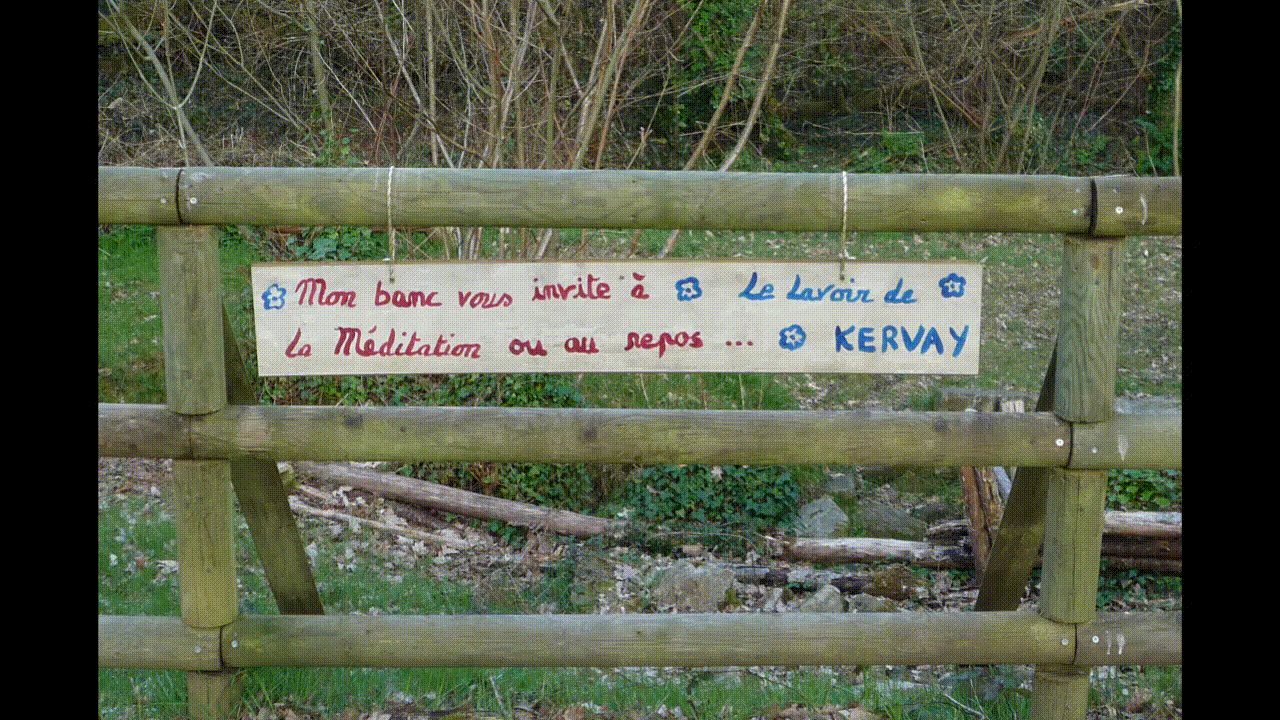 Mon banc vous invite à Le Lavoir de
La Méditation ou au repos ... KERVAY